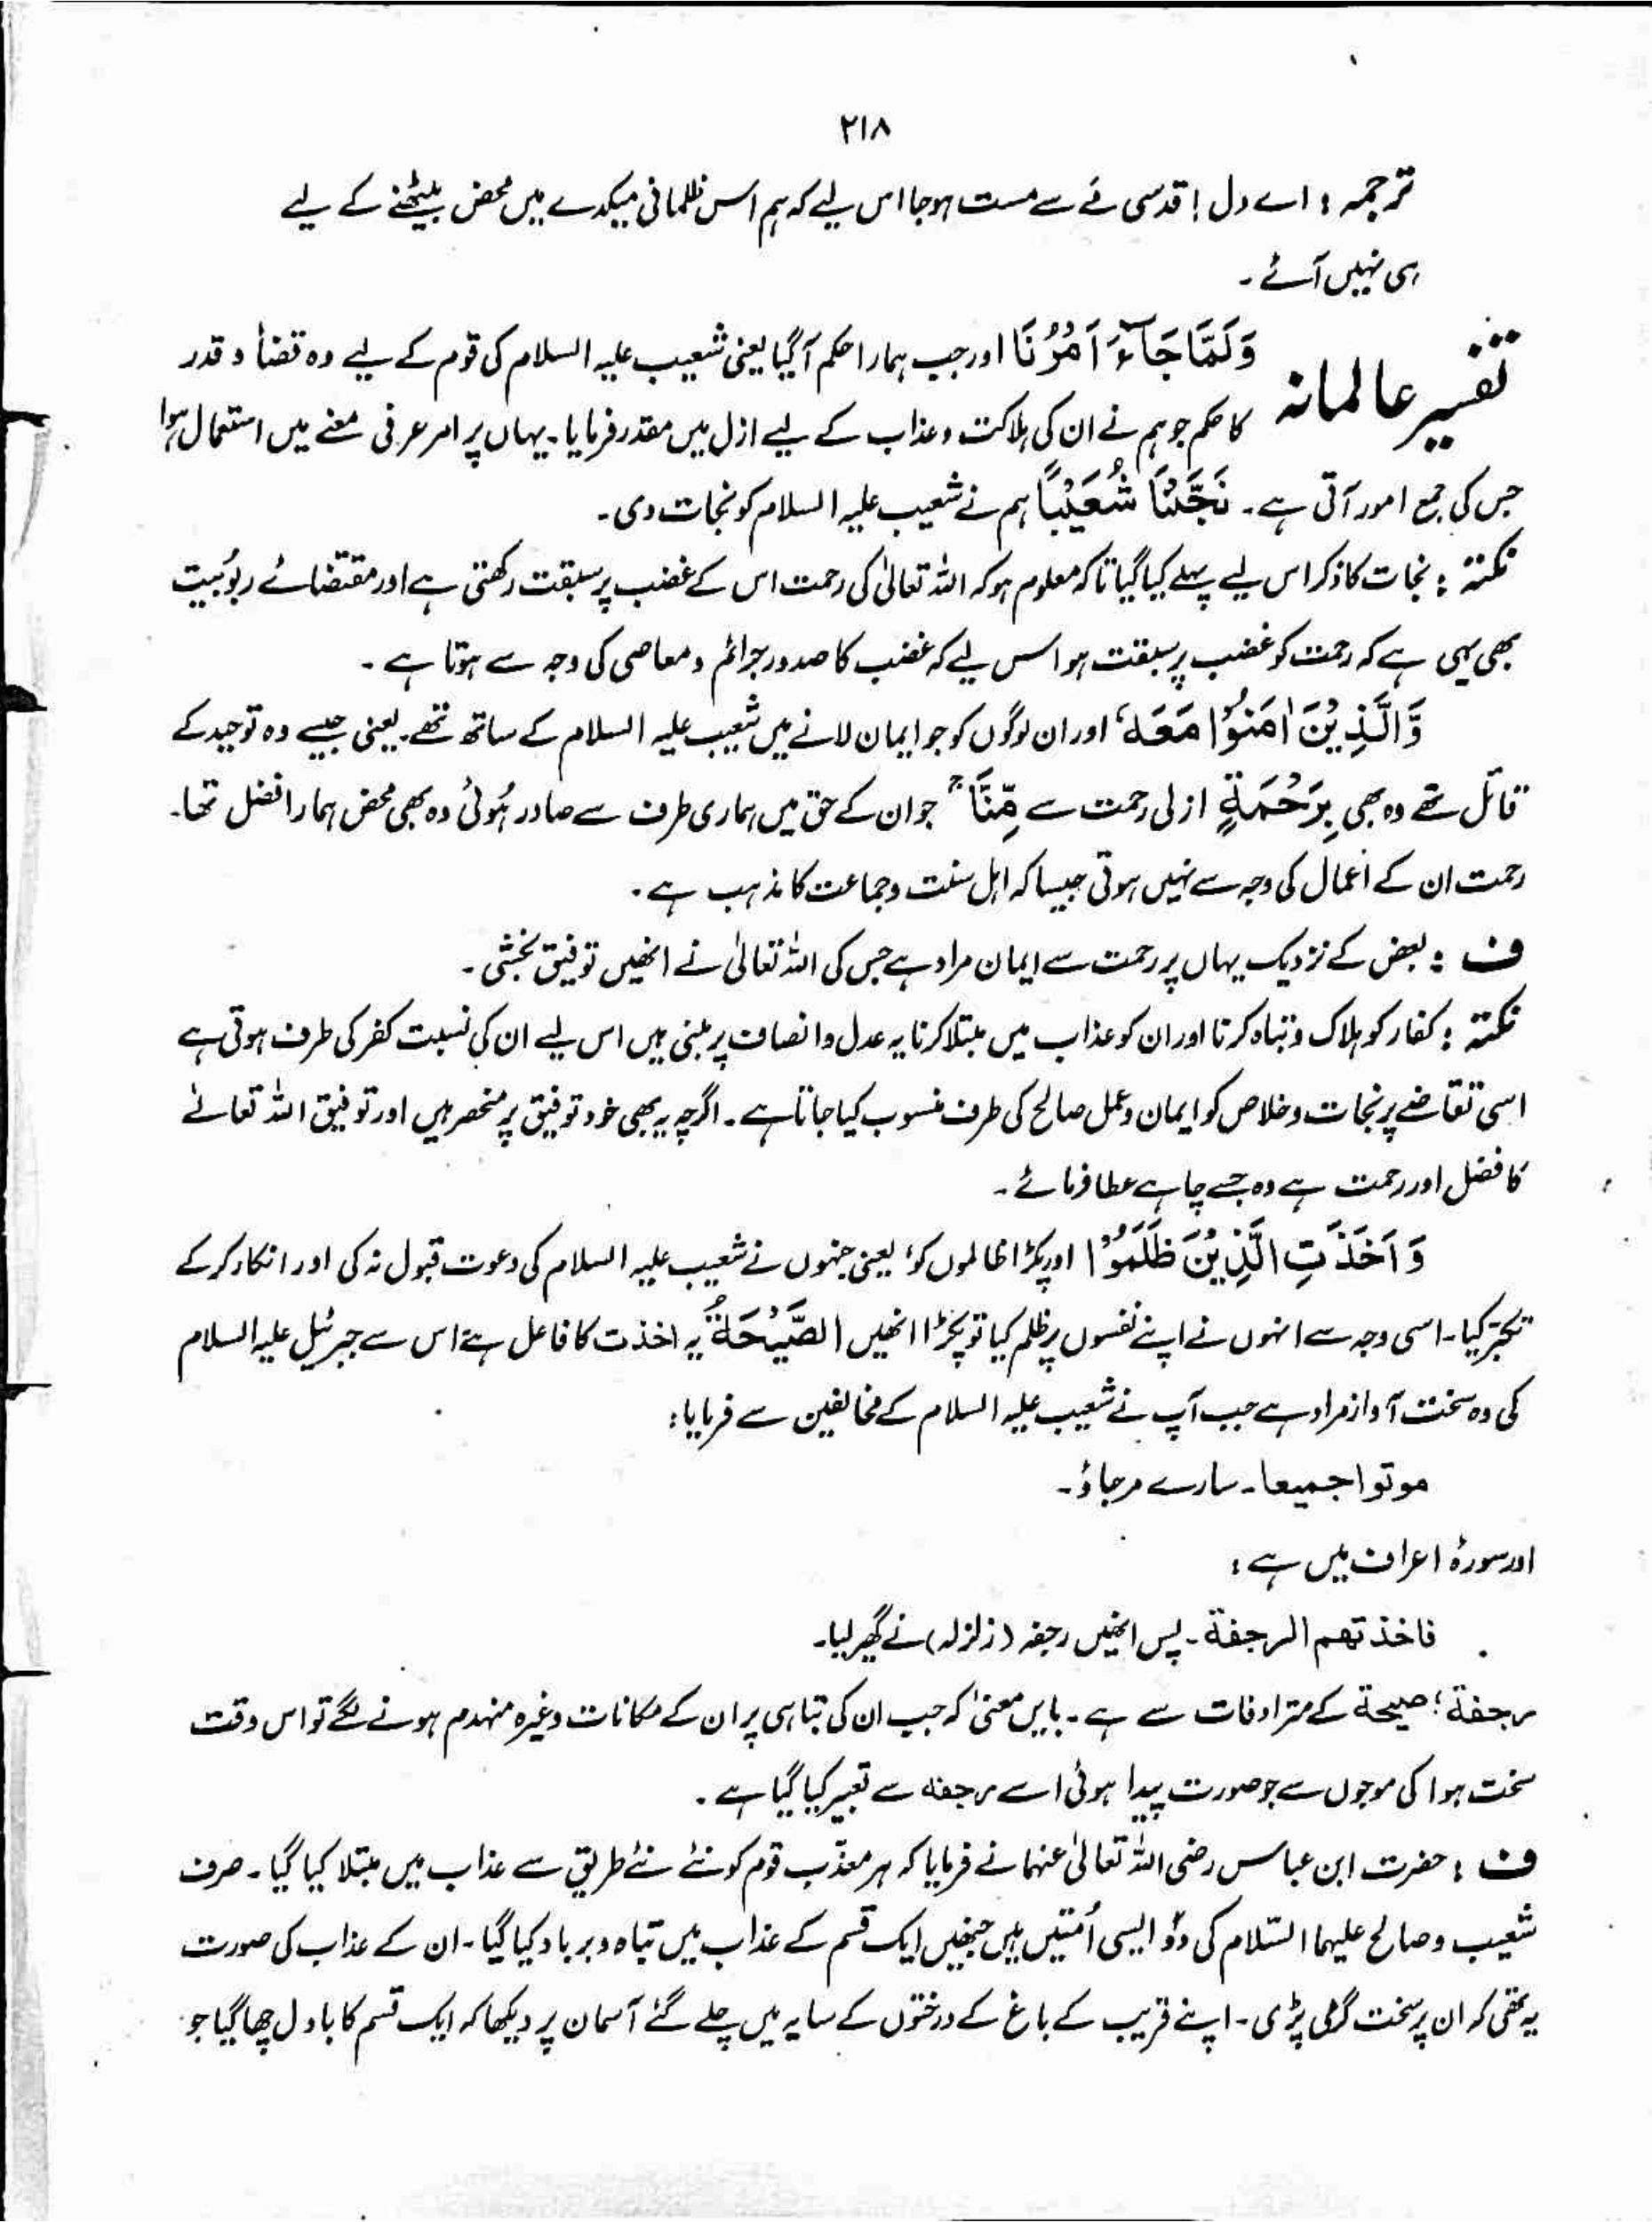 ۲۱۸
ترجمہ : اے دل ! قدسی مَے سے مست ہوجا اس لیے کہ ہم اس ظلمانی میکدے میں محض بیٹھنے کے لیے
ہی نہیں آئے ۔
تفسیر عالمانہ وَلَمَّا جَآءَ اَمْرُنَا اور جب ہمارا حکم آگیا یعنی شعیب علیہ السلام کی قوم کے لیے وہ قضأ و قدر
کا حکم جو ہم نے ان کی ہلاکت و عذاب کے لیے ازل میں مقدر فرمایا ۔ یہاں پر امر عرفی معنے میں استعمال ہوا
جس کی جمع امور آتی ہے ۔ نَجَّیْنَا شُعَیْبًا ہم نے شعیب علیہ السلام کو نجات دی ۔
نکتہ : نجات کا ذکر اس لیے پہلے کیا گیا تاکہ معلوم ہو کہ اللہ تعالیٰ کی رحمت اس کے غضب پر سبقت رکھتی ہے اور مقتضائے ربوُبیت
بھی یہی ہے کہ رحمت کو غضب پر سبقت ہو اس لیے کہ غضب کا صدور جرائم و معاصی کی وجہ سے ہوتا ہے ۔
وَّالَّذِیْنَ اٰمَنُوْا مَعَهٗ اور ان لوگوں کو جو ایمان لانے میں شعیب علیہ السلام کے ساتھ تھے ۔ یعنی جیسے وہ توحید کے
قائل تھے وہ بھی بِرَحْمَةٍ ازلی رحمت سے مِّنَّا ۚ جو ان کے حق میں ہماری طرف سے صادر ہُوئی وہ بھی محض ہمارا فضل تھا ۔
رحمت ان کے اعمال کی وجہ سے نہیں ہوتی جیسا کہ اہل سنت وجماعت کا مذہب ہے ۔
ف : بعض کے نزدیک یہاں پر رحمت سے ایمان مراد ہے جس کی اللہ تعالیٰ نے انھیں توفیق بخشی ۔
نکتہ : کفار کو ہلاک و تباہ کرنا اور ان کو عذاب میں مبتلا کرنا یہ عدل و انصاف پر مبنی ہیں اس لیے ان کی نسبت کفر کی طرف ہوتی ہے
اسی تقاضے پر نجات و خلاص کو ایمان و عمل صالح کی طرف منسوب کیا جاتا ہے ۔ اگرچہ یہ بھی خود توفیق پر منحصر ہیں اور توفیق اللہ تعالےٰ
کا فضل اور رحمت ہے وہ جسے چاہے عطا فرمائے ۔
وَ اَخَذَتِ الَّذِیْنَ ظَلَمُوْا اور پکڑا ظالموں کو ، یعنی جنہوں نے شعیب علیہ السلام کی دعوت قبول نہ کی اور انکار کر کے
تکبّر کیا ۔ اسی وجہ سے انہوں نے اپنے نفسوں پر ظلم کیا تو پکڑا انھیں الصَّیْحَةُ یہ اخذت کا فاعل ہے ، اس سے جبرئیل علیہ السلام
کی وہ سخت آواز مراد ہے جب آپ نے شعیب علیہ السلام کے مخالفین سے فرمایا :
موتوا جمیعا ۔ سارے مرجاؤ ۔
اور سورۂ اعراف میں ہے :
فاخذتھم الرجفة ۔ پس انھیں رجفہ (زلزلہ) نے گھیر لیا ۔
رجفة ، صیحة کے مترادفات سے ہے ۔ بایں معنیٰ کہ جب ان کی تباہی پر ان کے مکانات وغیرہ منہدم ہونے لگے تو اس وقت
سخت ہوا کی موجوں سے جو صورت پیدا ہوئی اسے رجفہ سے تعبیر کیا گیا ہے ۔
ف : حضرت ابن عباس رضی اللہ تعالیٰ عنہما نے فرمایا کہ ہر معذّب قوم کو نئے نئے طریق سے عذاب میں مبتلا کیا گیا ۔ صرف
شعیب و صالح علیہما السّلام کی دوُ ایسی اُمتیں ہیں جنھیں ایک قسم کے عذاب میں تباہ و برباد کیا گیا ۔ ان کے عذاب کی صورت
یہ تھی کہ ان پر سخت گرمی پڑی ۔ اپنے قریب کے باغ کے درختوں کے سایہ میں چلے گئے آسمان پر دیکھا کہ ایک قسم کا بادل چھا گیا جو